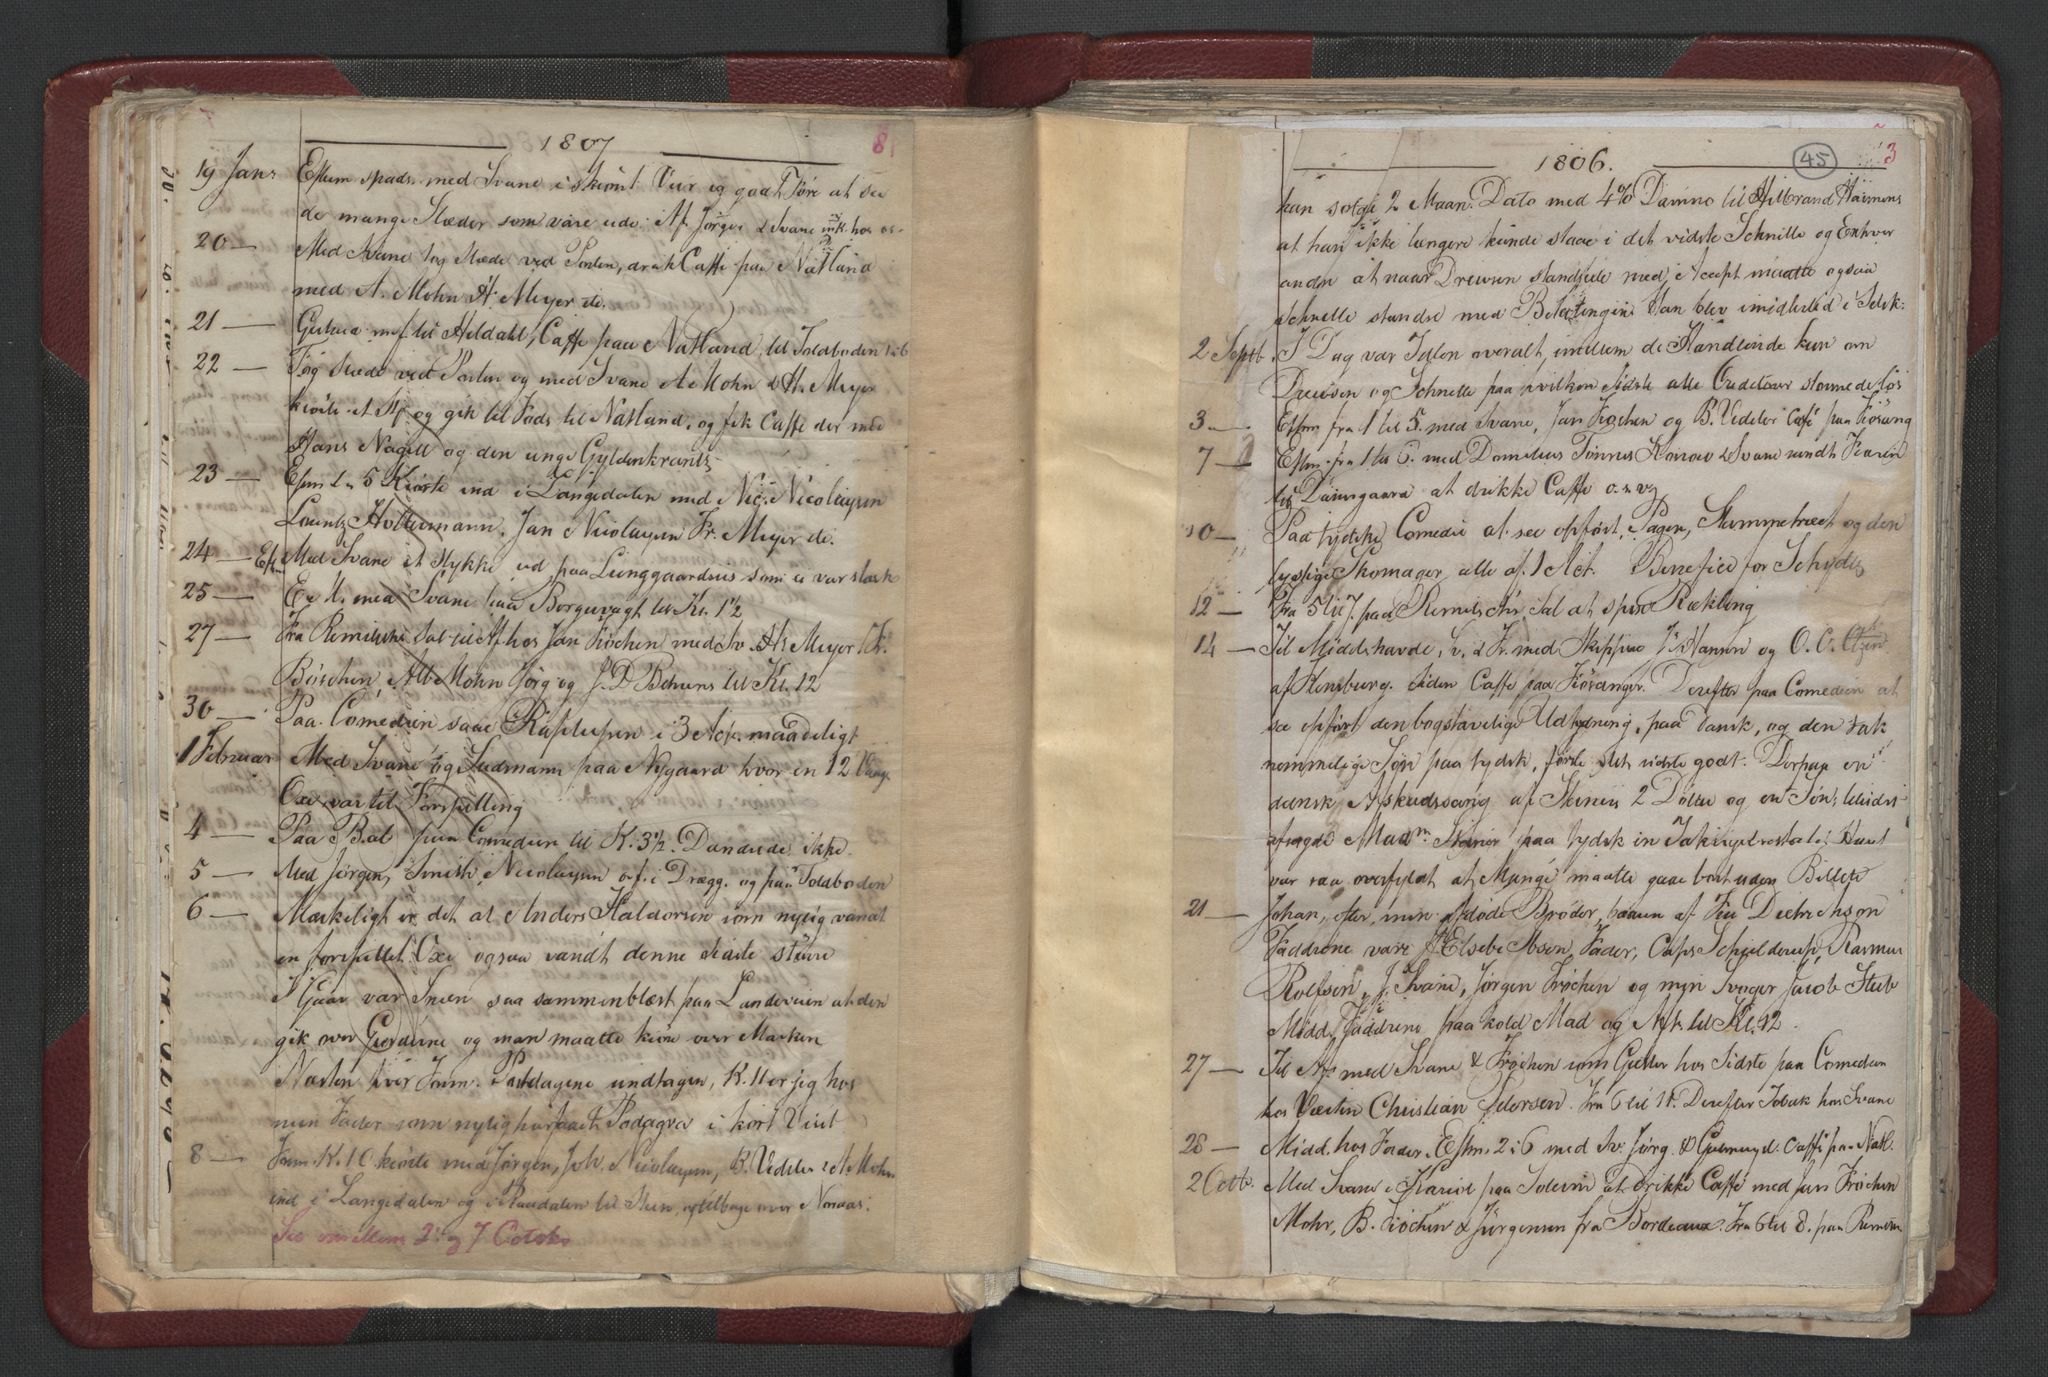 1807
8
19 Janr Efterm spads. med Svane i skiönt Veir og godt Före at see
de mange Slæder som vare ude. Af. Jørgen & Svane hos os
20 — Med Svane tog Slæde ved Porten, drak Caffe paa Natland
med A. Mohn H. Meyer &c.
21 — til Hildahl, Caffe paa Natland, til Toldboden 1 à 6
22 — Tog Slæde ved Porten og med Svane A Mohn & H. Meyer
kiörte et St. og gik til Fods til Natland, og fik Caffe der med
Hans Nagell og den unge Gyldenkrantz
23 — Efm 1 à 5 Kiörte ind i Langedalen med Nic. Nicolaysen
Lorentz Holtermann, Jan Nicolaysen Fr. Meyer &c.
24 — Efm Med Svane et Stykke ud paa Lunggaardsiis som var stærk
25 — E. M. med Svane paa Borgervagt til Kl. 1½
27 — Fra Remlische Sal til Af. hos Jan Fröchen med Sv. H. Meyer Fr.
Böschen, Alb Mohn Jörg og J. D. Behrens til Kl. 12
30 — Paa Comedien saae Ripilepsen i 3 Act. maadeligt
1 Februar Med Svane og Sudmann paa Nygaard hvor en 12
Oxe var til Forspilling
4 — Paa Bal paa Comedien til K. 3½. Dandsede ikke.
5 — Med Jörgen, Smith, Nicolaysen o.fl. i Drægg. og paa Toldboden
6 — Mærkeligt er det at Anders Haldorsen som nylig vandt
en forspillet Oxe ogsaa vandt denne sidste större
I Gaar var Sneen saa sammenblæst paa Landeveien at den
gik over Gierderne og man maatte kiöre over Marken
Næsten hver Form. Postdagene undtagen, K. 11 er jeg hos
min Fader som nylig har faaet Podagra i kort Visit
8 — Form K. 10 kiörte med Jörgen, Joh. Nicolaysen, B. Vedeler & A Mohn
ind i Langedalen og i Haudalen til Steen, og tilbage over Naraas.
See imellem 2 og 7 Octobr
1806.
45
3
han solgte 2 Maan. Dato med 4% Damno til Hilbrand Harmens
at han ikke længere kunde staae i det vidste Schnelle og Enhver
andre at naar Drewsen standsede med Accept maatte ogsaa
Schnelle standse med Betalingen. Han blev imidlertid i Selsk:
2 Septb. I Dag var Talen overalt imellem de Handlende kun om
Drewsen og Schnelle paa hvilken sidste alle Creditorer stormede lös
3 — Efterm fra 1 til 5. med Svane, Jan Fröchen og B. Vedeler Café paa Fösang
7 — Efterm. fra 1 til 6. med Danielius Tönnes Konow & Svane rundt Fiæren
til Damsgaard at drikke Caffe o.s.v.
10 — Paa tydske Comedie at see opfört, Pagen, Stammetræet og den
lystige Skomager alle af 1 Act. Benefice for Schydes
12 — Fra 5 til 7. paa Remlische Sal at spise Rækling
14 — Til Middshavde, Sv. & Fr. med Skipper J. Hansen og O. C. Etzen
af Flensburg. Siden Caffe paa Fösanger. Derefter paa Comedien at
see opfört den bogstavelige Udtydning, paa Dansk, og den tak
nemmelige Sön paa tydsk, förste slet sidste godt. Derpaa en
dansk Afskedssang af Steinens 2 Dötre og en Sön, tilsidst
afsagde Madm. Steiner paa tydsk en Taksigelsestale. Huset
var saa overfyldt at Mange maatte gaae bort uden Billete
21 — Johan, efter min afdöde Broder, baaren af Fru Dietrichson
Fadderne vare Elsebe Ibsen, Fader, Capt Schjelderup, Rasmus
Rolfsen, J. Svane, Jörgen Fröchen og min Svoger Jacob Stub
Midd. Fadderne paa kold Mad og Aft. til Kl. 12.
27 — Til Af. med Svane & Fröchen som Giester hos Sidste paa Comedien
hos Værten Christian Pedersen. Fra 6 til 11. Derefter Tobak hos Svane
28 — Midd. hos Fader. Efm. 2 à 6 med Sv. Jörg. & Gulmeyd. Caffe paa Natl.
2 Octb. Med Svane i Kariol paa Solem at drikke Caffé med Jan Fröchen
Mohr, B. Fröchen & Jürgensen fra Bordeaux. Fra 6 til 8. paa Remlsche